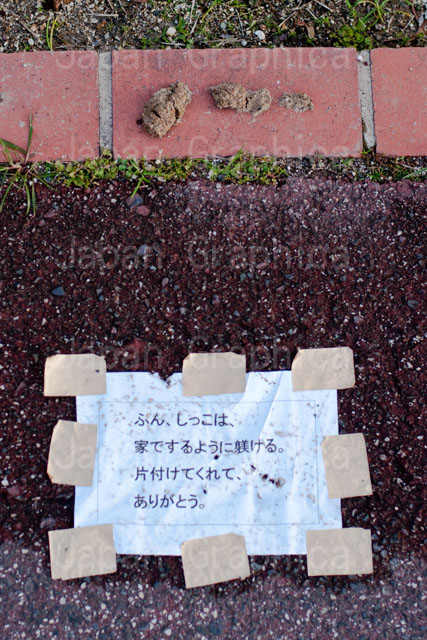 Japan Graphica
Japan Graphica
Japan Graphica
Japan Graphica
ふん、しっこは、
家でするように躾ける。
片付けてくれて、
ありがとう。
Japan Graphica
Japan Graphica
Japan Graphica